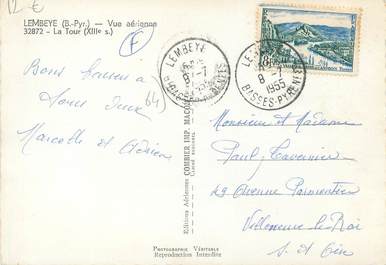 12 €
LEMBEYE (B.-Pyr.) — Vue aérienne
32872 - La Tour (XIIIe s.)
F
64)
Bons baisers à
tous deux
Marcelle et
LEMBEYE
8 -7
1955
BASSES-PYRENEES
LEMBEYE
8 -7
1955
BASSES-PYRENEES
Editions Aériennes COMBIER IMP. MACON
Monsieur et Madame
Paul Tavernier
Avenue Parmentier
Villeneuve le Roi
S. et Oise
PHOTOGRAPHIE VÉRITABLE
Reproduction Interdite